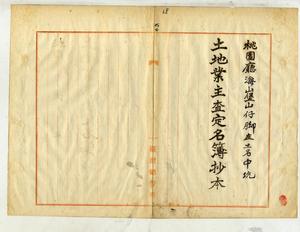 桃園廳海山堡山仔脚庄土名中坑
土地業主查定名簿抄本